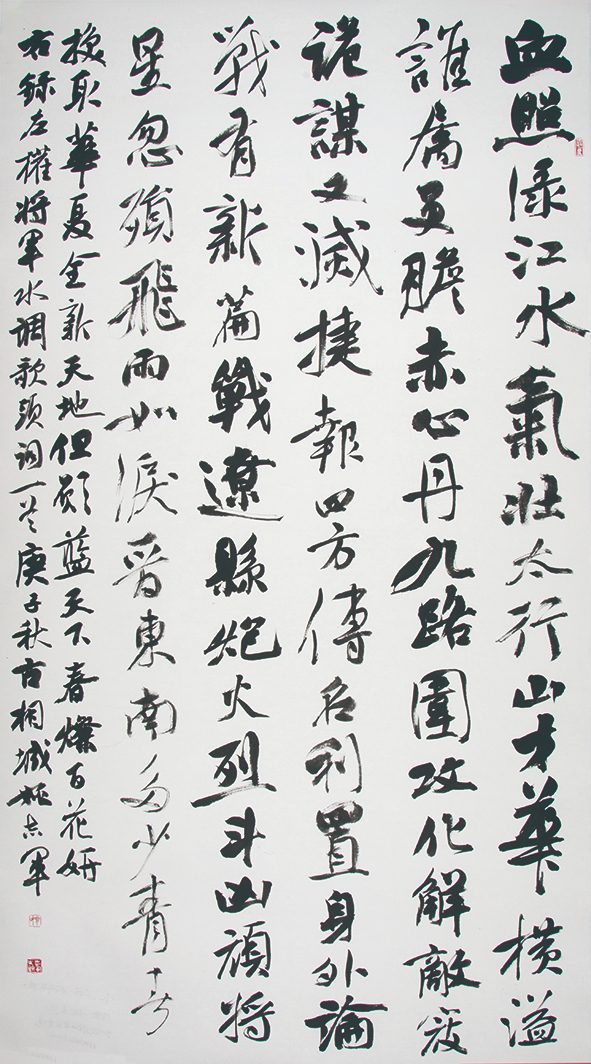 血照淥江水氣壯太行山才華橫溢
誰屬膽赤心丹九路圍攻化解敵寇
詭謀又滅捷報四方傳名利置身外論
戰有新篇戰遼縣炮火烈斗凶頑將
星忽殞飛雨如淚晉東南多少青春
換取華夏全新天地但願藍天下春燦百花妍
右錄左權將軍水調歌頭詞一首庚子秋古桐城姚志軍